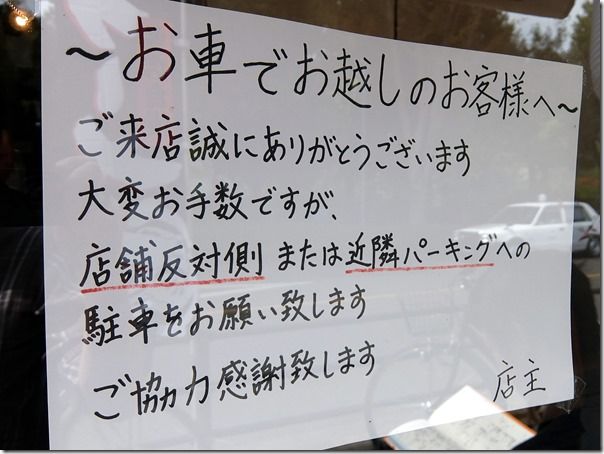 ～お車でお越しのお客様へ～
ご来店誠にありがとうございます
大変お手数ですが、
店舗反対側または近隣パーキングへの
駐車をお願い致します
ご協力感謝致します
店主